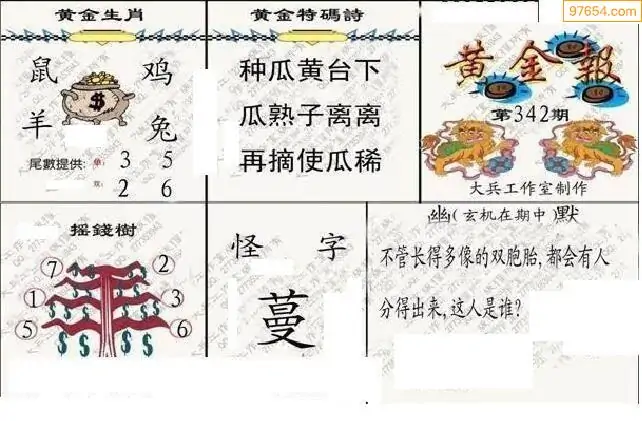 97654.com
黄金生肖
鼠 鸡
$
羊 兔
尾數提供: 单: 3 5
双: 2 6
黄金特碼詩
种瓜黄台下
瓜熟子离离
再摘使瓜稀
黄金報
第342期
大兵工作室制作
摇錢樹
⑦ ②
① ③
⑤ ⑥
怪 字
蔓
幽(玄机在期中)默
不管长得多像的双胞胎,都会有人
分得出来,这人是谁?